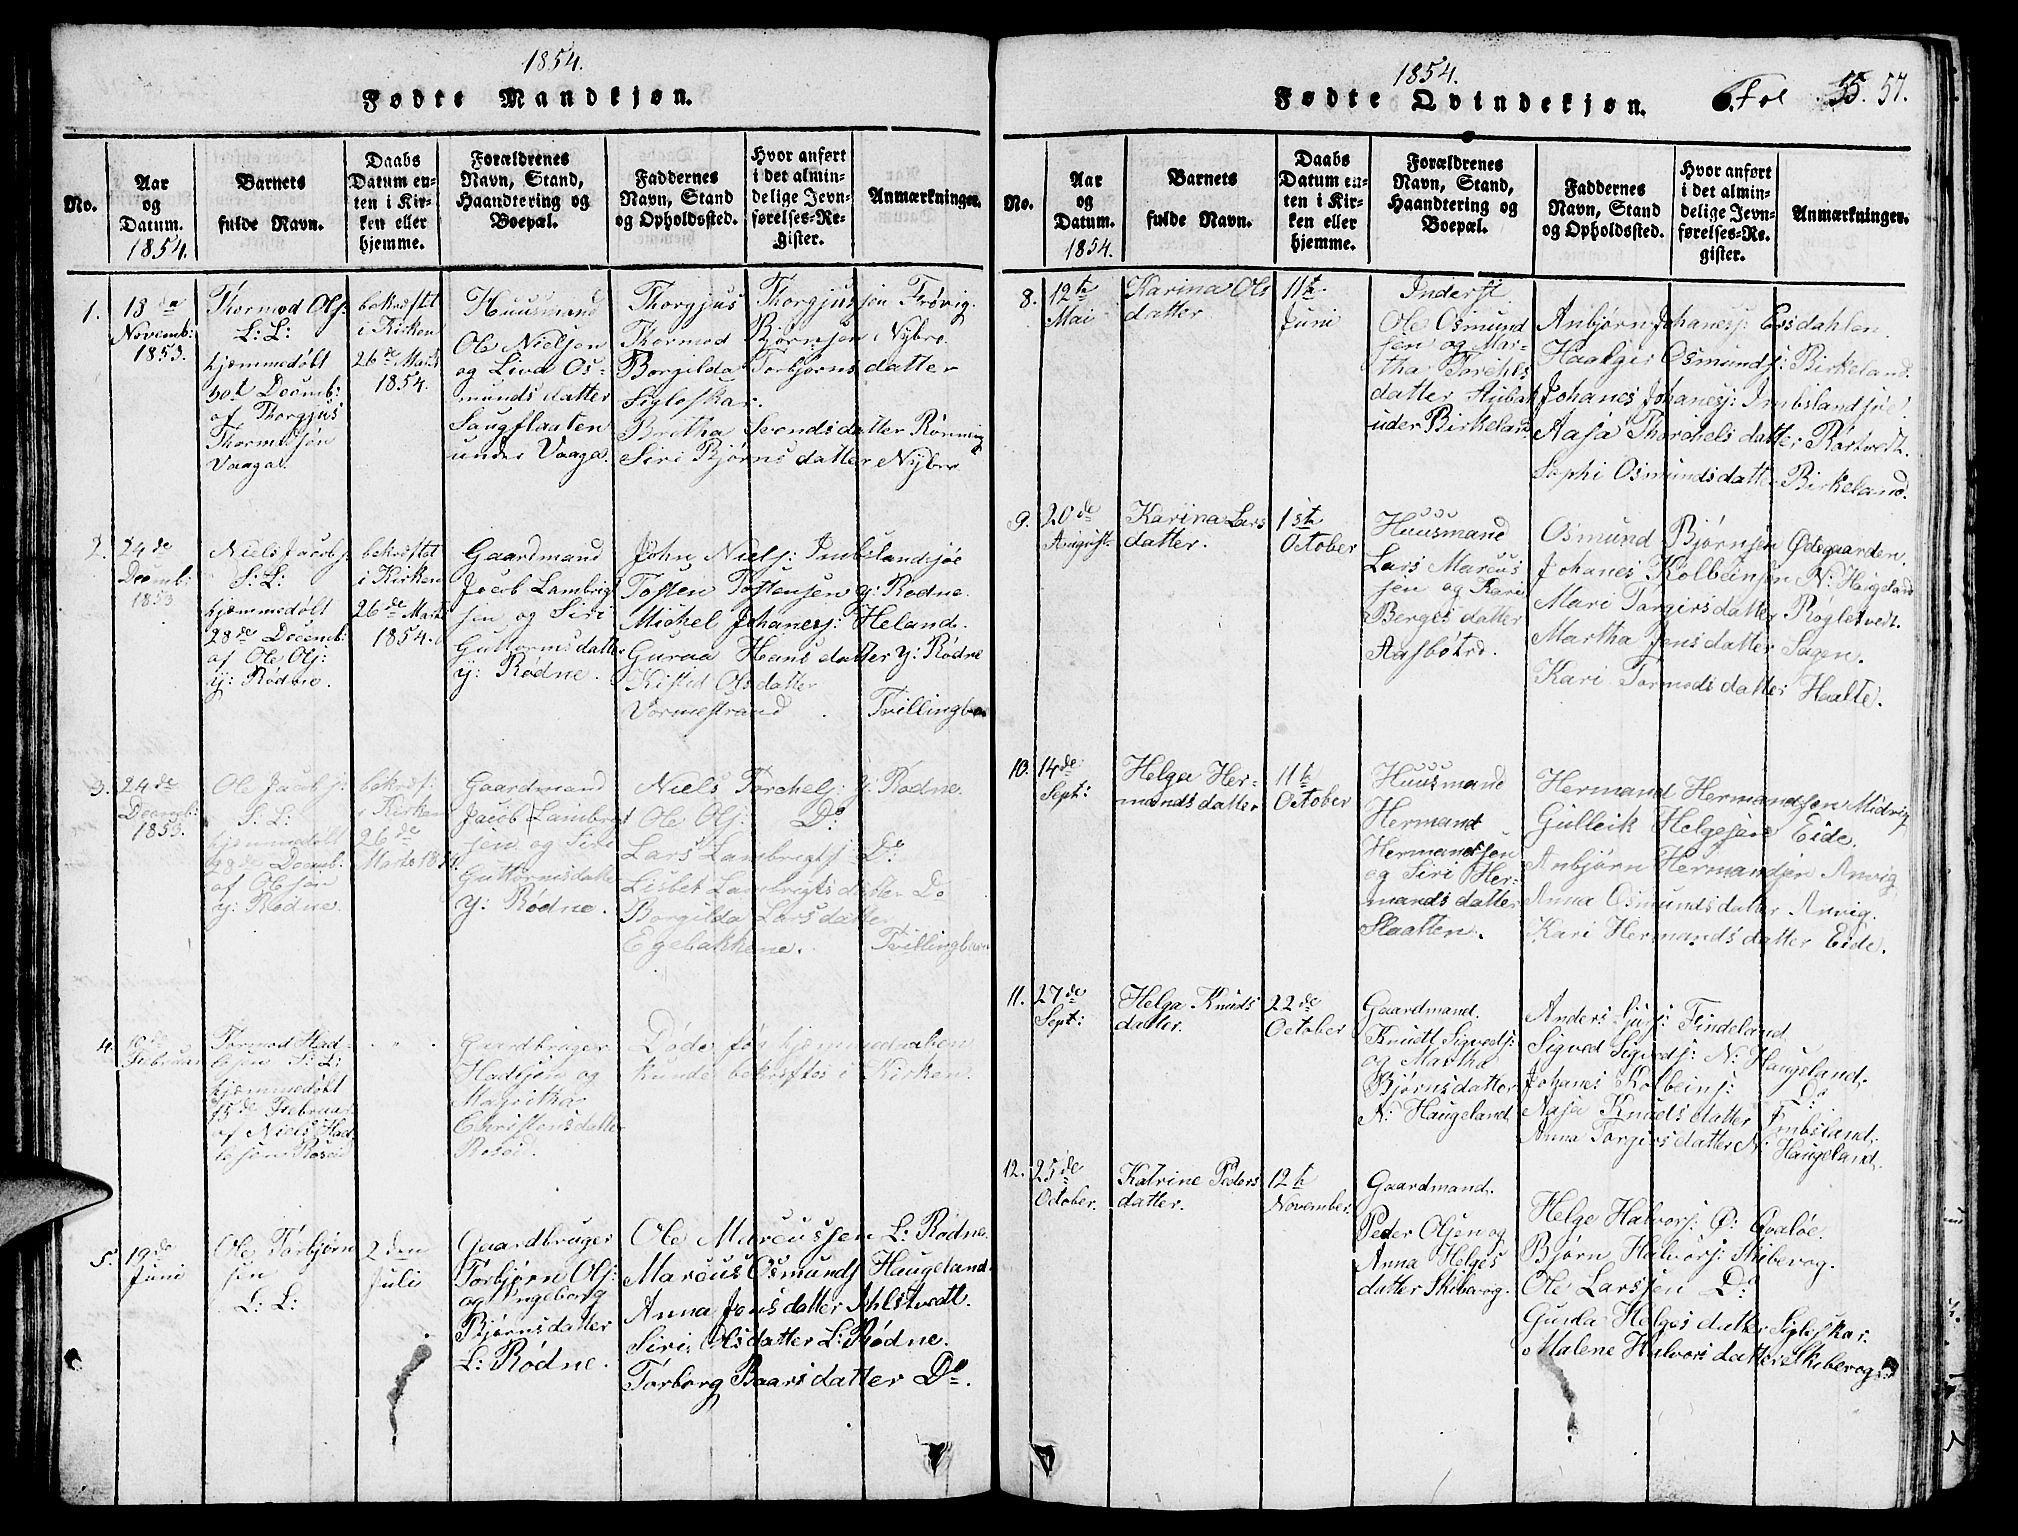 1854.
Fødte Mandkjøn.
No.
Aar
og
Datum.
1854.
Barnets
fulde Navn.
Daabs
Datum en-
ten i Kir-
ken eller
hjemme.
Forældrenes
Navn, Stand,
Haandtering og
Boepæl.
Faddernes
Navn, Stand
og Opholdssted.
Hvor anført
i det almin-
delige Jevn-
førelses-Re-
gister.
Anmærkninger.
1.
18de
Novemb:
1853.
Thormod Ols:
L: L:
hjemmedøbt
Decemb:
af Thorgjus
Vaaga.
bekræftet
i Kirken
26de Marts
1854.
Huusmand
Ole Nielsen
og Liva Os-
munds datter
Laugflaaten
under Vaaga.
Thorgjus Thorgjussen Trøvig.
Thormod Bjørnsen Nybro.
Borgilda Torbjørns datter
Sigloskar.
Bretha Svends datter
Siri Bjørns datter Nybro
2.
24de
Decemb:
1853
Niels Jacobs:
S: L:
hjemmedøbt
28de Decemb:
af Ole Ols:
Y: Rødne.
bekræftet
i Kirken
26de Marts
1854.
Gaardmand
Jacob Lambrig
sen og Siri
Guttorms datter
Y: Rødne.
John Niels: Imbslandsjøe
Tosten Tostensen Y: Rødne.
Michel Johanes: Heland.
Guraa Hans datter Y: Rødne
Ols datter
Vormestrand
Tvillingbarn
3.
24de
Decemb:
1853.
Ole Jacobs:
S: L:
hjemmedøbt
28de Decemb:
af Olsøn
Y: Rødne.
bekræf:
i Kirken
26de
Marts 1854
Gaardmand
Jacob Lambrigt
sen og Siri
Guttormsdatte
Y: Rødne.
Niels Torchels: Y: Rødne.
Ole Ols: Do
Lars Lambrigts: Do
Lisbet Lambrigts datter Do
Borgilda Lars datter
Egebakkene.
Tvillingbarn
4.
Februar
Tormod Had
S: L:
hjemmedøbt
15de Februar
af Niels Had
Rosød
" "
Gaardbruger
Hadlesen og
Christens datter
Rosød.
Døde før hjemmedaaben
kunde bekræftes i Kirken.
5.
19de
Juni
Ole Torbjørn
sen
L: L:
2den
Juli
Gaardbruger
Torbjørn Ols:
og Ingeborg
Bjørnsdatter
L: Rødne.
Ole Marcussen L: Rødne.
Marcus Osmunds: Haugeland.
Anna Jens datter
Siri Olsdatter L: Rødne.
Torborg Baars datter Do.
1854.
Fødte Qvindekjøn.
Fol 55. 57.
No.
Aar
og
Datum.
1854.
Barnets
fulde Navn.
Daabs
Datum en-
ten i Kir-
ken eller
hjemme.
Forældrenes
Navn, Stand,
Haandtering og
Boepæl.
Faddernes
Navn, Stand
og Opholdssted.
Hvor anført
i det almin-
delige Jevn-
førelses-Re-
gister.
Anmærkninger.
8.
12te
Mai
Karina Ols
datter
11te
Juni
Inderst
Ole Osmund
sen og Mar-
tha Torchels
datter
under Birkeland
Anbjørn Johanes: Ersdahlen.
Haalger Osmunds: Birkeland.
Johanes Johanes: Imbslandsjøe
Aasa Thorchels datter Rørtvedt.
Sophi Osmunds datter Birkeland.
9.
20de
August
Karina Lars
datter.
1ste
October
Huusmand
Lars Marcus
sen og Kari
Berges datter
Osmund Bjørnsen Ødegaarden.
Johanes Kolbeinsen N: Haugeland
Mari Torgirs datter Røgletvedt.
Martha Jens datter Sagen.
Kari Tormods datter Haalte.
10.
14de
Sept:
Helga Her-
mands datter
11te
October
Huusmand
Hermand
Hermandsen
og Siri Her-
mands datter
Slaatten.
Hermand Hermandsen Midvig
Gulleik Helgesen Eide.
Anbjørn Hermandsen Anvig
Anna Osmunds datter Anvig.
Kari Hermands datter Eide.
11.
27de
Sept:
Helga Knuds
datter.
22de
October
Gaardmand.
Knudt Sigveds:
og Martha
Bjørnsdatter
N: Haugeland
Anders Findeland
Sigved Sigveds: N: Haugeland.
Johanes Kolbeins: Do
Aasa Knuds datter Imbsland.
Anna Torgirs datter N: Haugeland.
12.
25de
October.
Katrine Peders
datter.
12te
November.
Gaardmand.
Peder Olsen og
Anna Helges
datter Skibevog.
Helge Halvors: Ø: Qvaløe.
Bjørn Halvors: Skibevog.
Ole Larssen Do
Gunla Helges datter Sigloskar.
Malene Halvors datter Skibevog